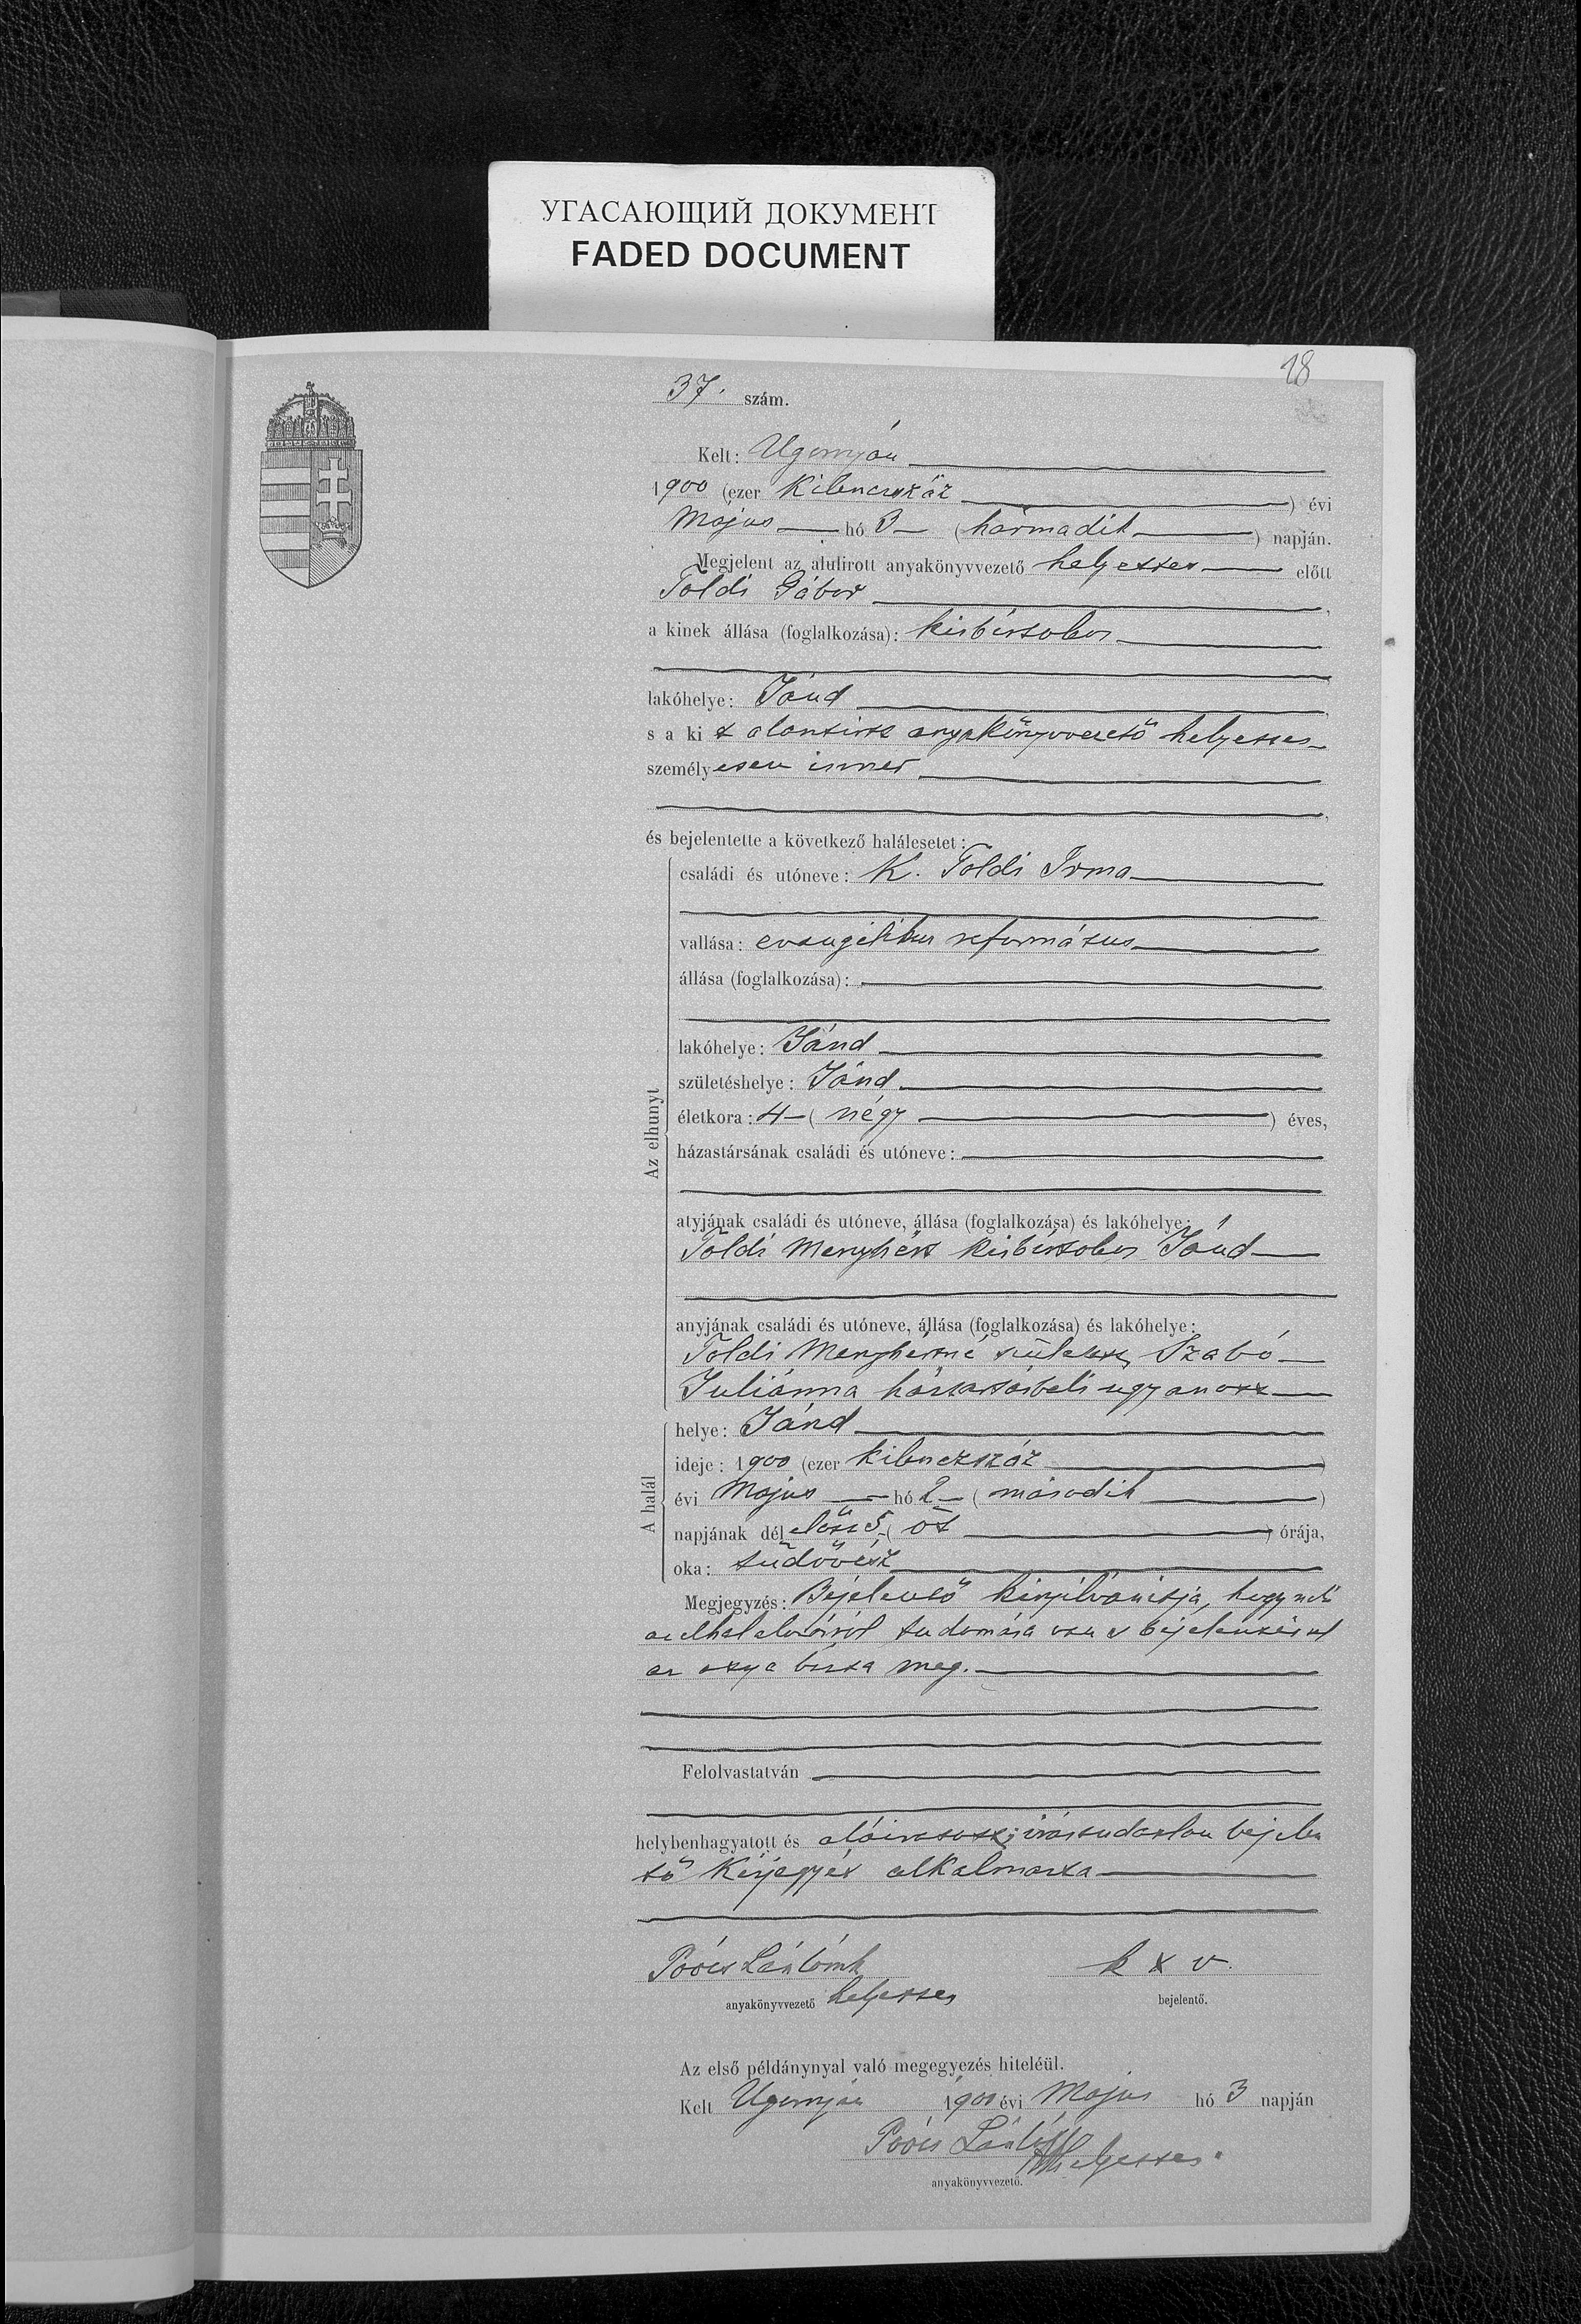 УГАСАЮЩИЙ ДОКУМЕНТ
FADED DOCUMENT
18
37. szám.
Kelt: Ugornyán
1900 (ezer kilenczszáz) évi
Május hó 3 (harmadik) napján.
Megjelent az alulirott anyakönyvvezető helyettes előtt
Toldi Gábor,
a kinek állása (foglalkozása): kisbirtokos
lakóhelye: Jánd,
s a ki t alantirt anyakönyvvezető helyettes
személyesen ismer
és bejelentette a következő halálesetet:
Az elhunyt
családi és utóneve: K. Toldi Irma
vallása: evangelikus református
állása (foglalkozása):
lakóhelye: Jánd
születéshelye: Jánd
életkora: 4 (négy) éves,
házastársának családi és utóneve:
atyjának családi és utóneve, állása (foglalkozása) és lakóhelye:
Toldi Menyhért kisbirtokos Jánd
anyjának családi és utóneve, állása (foglalkozása) és lakóhelye:
Toldi Menyhértné született Szabó
Juliánna háztartásbeli ugyanott
A halál
helye: Jánd
ideje: 1900 (ezer kilenczszáz)
évi Május hó 2 (második)
napjának dél előtt 5 (öt) órája,
oka: tüdővész
Megjegyzés: Bejelentő kinyilvánitja, hogy neki
az elhalálozásról tudomása van s bejelentéssel
az atya bizta meg.
Felolvastatván
helybenhagyatott és aláiratott; irástudatlan bejelen
tő kézjegyét alkalmazta
Poócs László
anyakönyvvezető helyettes
k x v.
bejelentő.
Az első példánynyal való megegyezés hiteléül.
Kelt Ugornyán 1900 évi Május hó 3 napján
Poócs László
helyettes.
anyakönyvvezető.